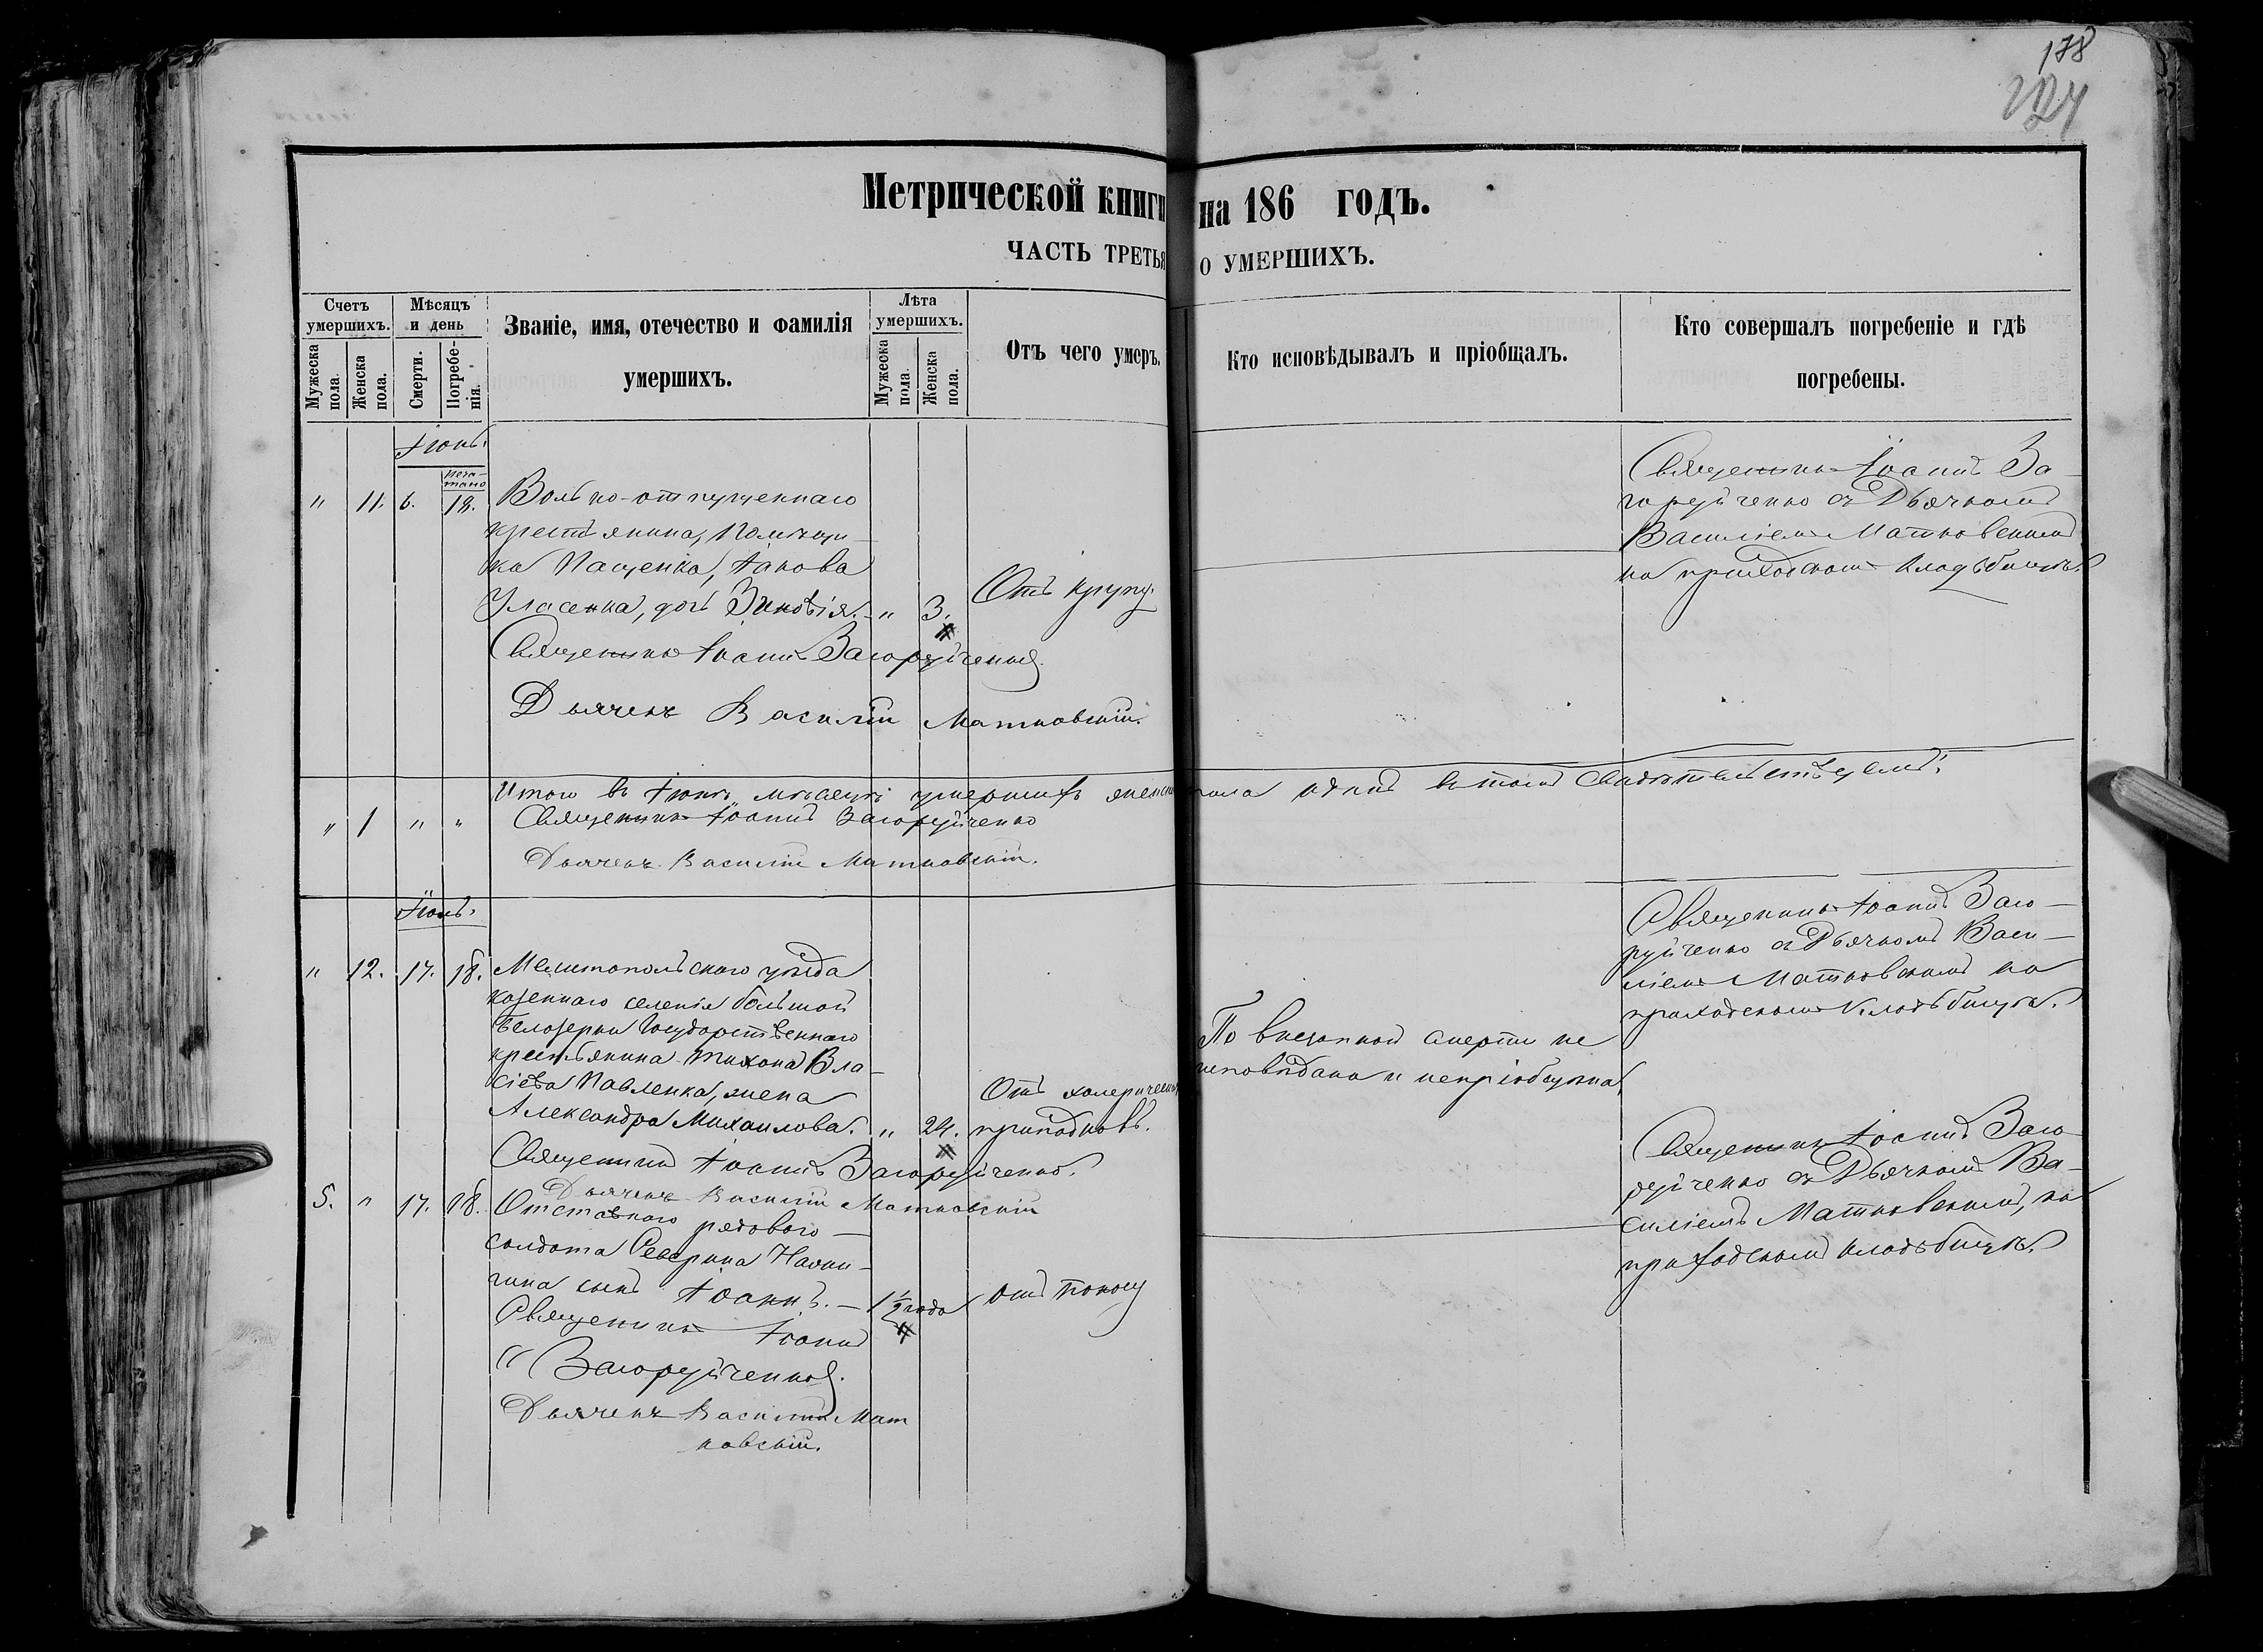 178
Метрической книги на 186 годъ.
ЧАСТЬ ТРЕТЬЯ О УМЕРШИХЪ.
Счетъ умершихъ.
Мужеска пола.
Женска пола.
Мѣсяцъ и день
Смерти.
Погребенія.
Званіе, имя, отечество и фамилія
умершихъ.
Лѣта умершихъ.
Мужеска пола.
Женска пола.
Отъ чего умеръ.
Кто исповѣдывалъ и пріобщалъ.
Кто совершалъ погребеніе и гдѣ
погребены.
Іюнь.
" 11. 6. 18. Вольно-отпущеннаго
крестьянина, помѣщи-
ка Пащенка, Іакова
Уласенка, дочь Зиновія. " 3. Отъ крупу.
Священникъ Іоаннъ Загоруйченко.
Дьячекъ Василій Матковскій.
Священникъ Іоаннъ За-
горуйченко съ Дьячкомъ
Василіемъ Матковскимъ
на приходскомъ кладбищѣ.
Итого въ Іюнѣ мѣсяцѣ умершихъ женска пола одна въ томъ свидѣтельствуемъ:
" 1 " " Священникъ Іоаннъ Загоруйченко
Дьячекъ Василій Матковскій.
Іюль.
" 12. 17. 18. Мелитопольского уѣзда
казеннаго селенія большой
Белозерки Государственнаго
крестьянина Тихона Вла-
сіева Павленка, жена
Александра Михаилова. " 24. Отъ холерическихъ
припадковъ.
По внезапной смерти не
исповѣдана и непріобщена
Священникъ Іоаннъ Заго-
руйченко съ Дьячкомъ Васи-
ліемъ Матковскимъ на
приходскомъ кладбищѣ.
Священникъ Іоаннъ Загоруйченко.
Дьячекъ Василій Матковскій
5. " 17. 18. Отставного рядового
солдата Северина
сынъ Іоаннъ. — 1 1/2 года отъ поносу
Священникъ Іоаннъ
Загоруйченко.
Дьячекъ Василій Мат
ковскій.
Священникъ Іоаннъ Заго-
руйченко съ Дьячкомъ Ва-
силіемъ Матковскимъ, на
приходскомъ кладбищѣ.